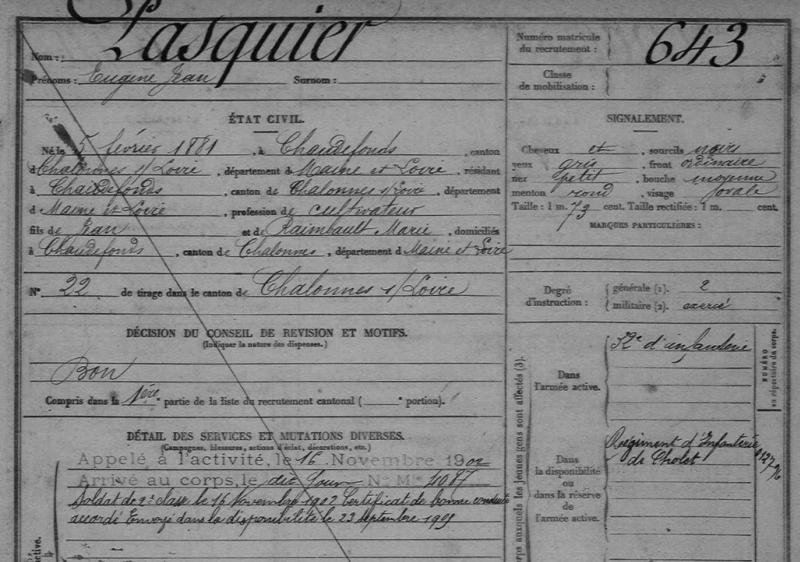 Nom : Pasquier
Prénoms : Eugène Jean Surnom :
Numéro matricule du recrutement : 643
Classe de mobilisation :
ÉTAT CIVIL.
Né le 5 février 1881, à Chaudefonds, canton
d Chalonnes s/Loire, département de Maine et Loire, résidant
à Chaudefonds, canton de Chalonnes s/Loire, département
d Maine et Loire, profession de cultivateur
fils de Jean et de Raimbault Marie, domiciliés
à Chaudefonds, canton de Chalonnes, département d Maine et Loire
N° 22 de tirage dans le canton de Chalonnes s/Loire
DÉCISION DU CONSEIL DE REVISION ET MOTIFS.
(Indiquer la nature des dispenses.)
Bon
Compris dans la 1ère partie de la liste du recrutement cantonal ( portion).
DÉTAIL DES SERVICES ET MUTATIONS DIVERSES.
(Campagnes, blessures, actions d'éclat, décorations, etc.)
Appelé à l'activité, le 16 Novembre 1902
Arrivé au corps, le dit jour N° Mle
Soldat de 2e classe le 16 Novembre 1902 Certificat de bonne conduite
accordé Envoyé dans la disponibilité le 23 septembre
SIGNALEMENT.
Cheveux et, sourcils noirs
yeux gris, front ordinaire
nez petit, bouche moyenne
menton rond, visage ovale
Taille : 1 m. 73 cent. Taille rectifiée : 1 m. cent.
MARQUES PARTICULIÈRES :
Degré d'instruction : générale (1). 2
militaire (2). exercé
Dans l'armée active.
d'infanterie
NUMÉRO au répertoire du corps.
Dans la disponibilité ou dans la réserve de l'armée active.
Régiment d'Infanterie
de Cholet
corps auxquels les jeunes gens sont affectés (3).
active.